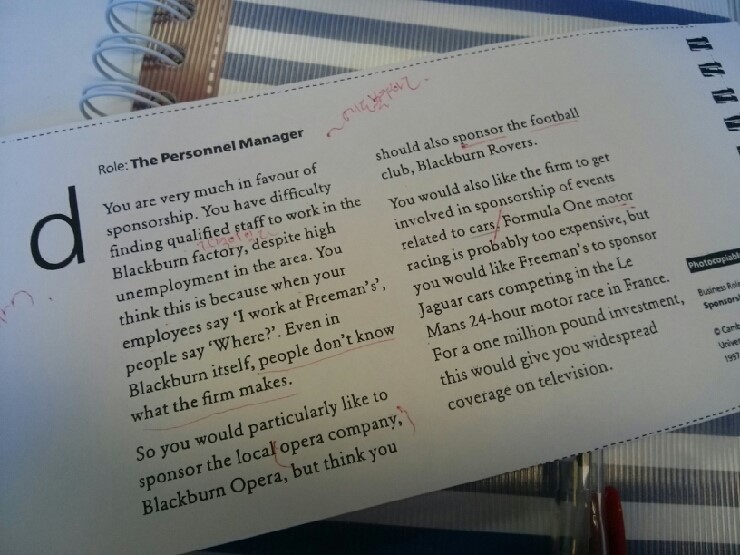 d
Role: The Personnel Manager
You are very much in favour of
sponsorship. You have difficulty
finding qualified staff to work in the
Blackburn factory, despite high
unemployment in the area. You
think this is because when your
employees say ‘I work at Freeman’s’,
people say ‘Where?’. Even in
Blackburn itself, people don’t know
what the firm makes.
So you would particularly like to
sponsor the local opera company,
Blackburn Opera, but think you
should also sponsor the football
club, Blackburn Rovers.
You would also like the firm to get
involved in sponsorship of events
related to cars. Formula One motor
racing is probably too expensive, but
you would like Freeman’s to sponsor
Jaguar cars competing in the Le
Mans 24-hour motor race in France.
For a one million pound investment,
this would give you widespread
coverage on television.
Business
Sponsors
1997